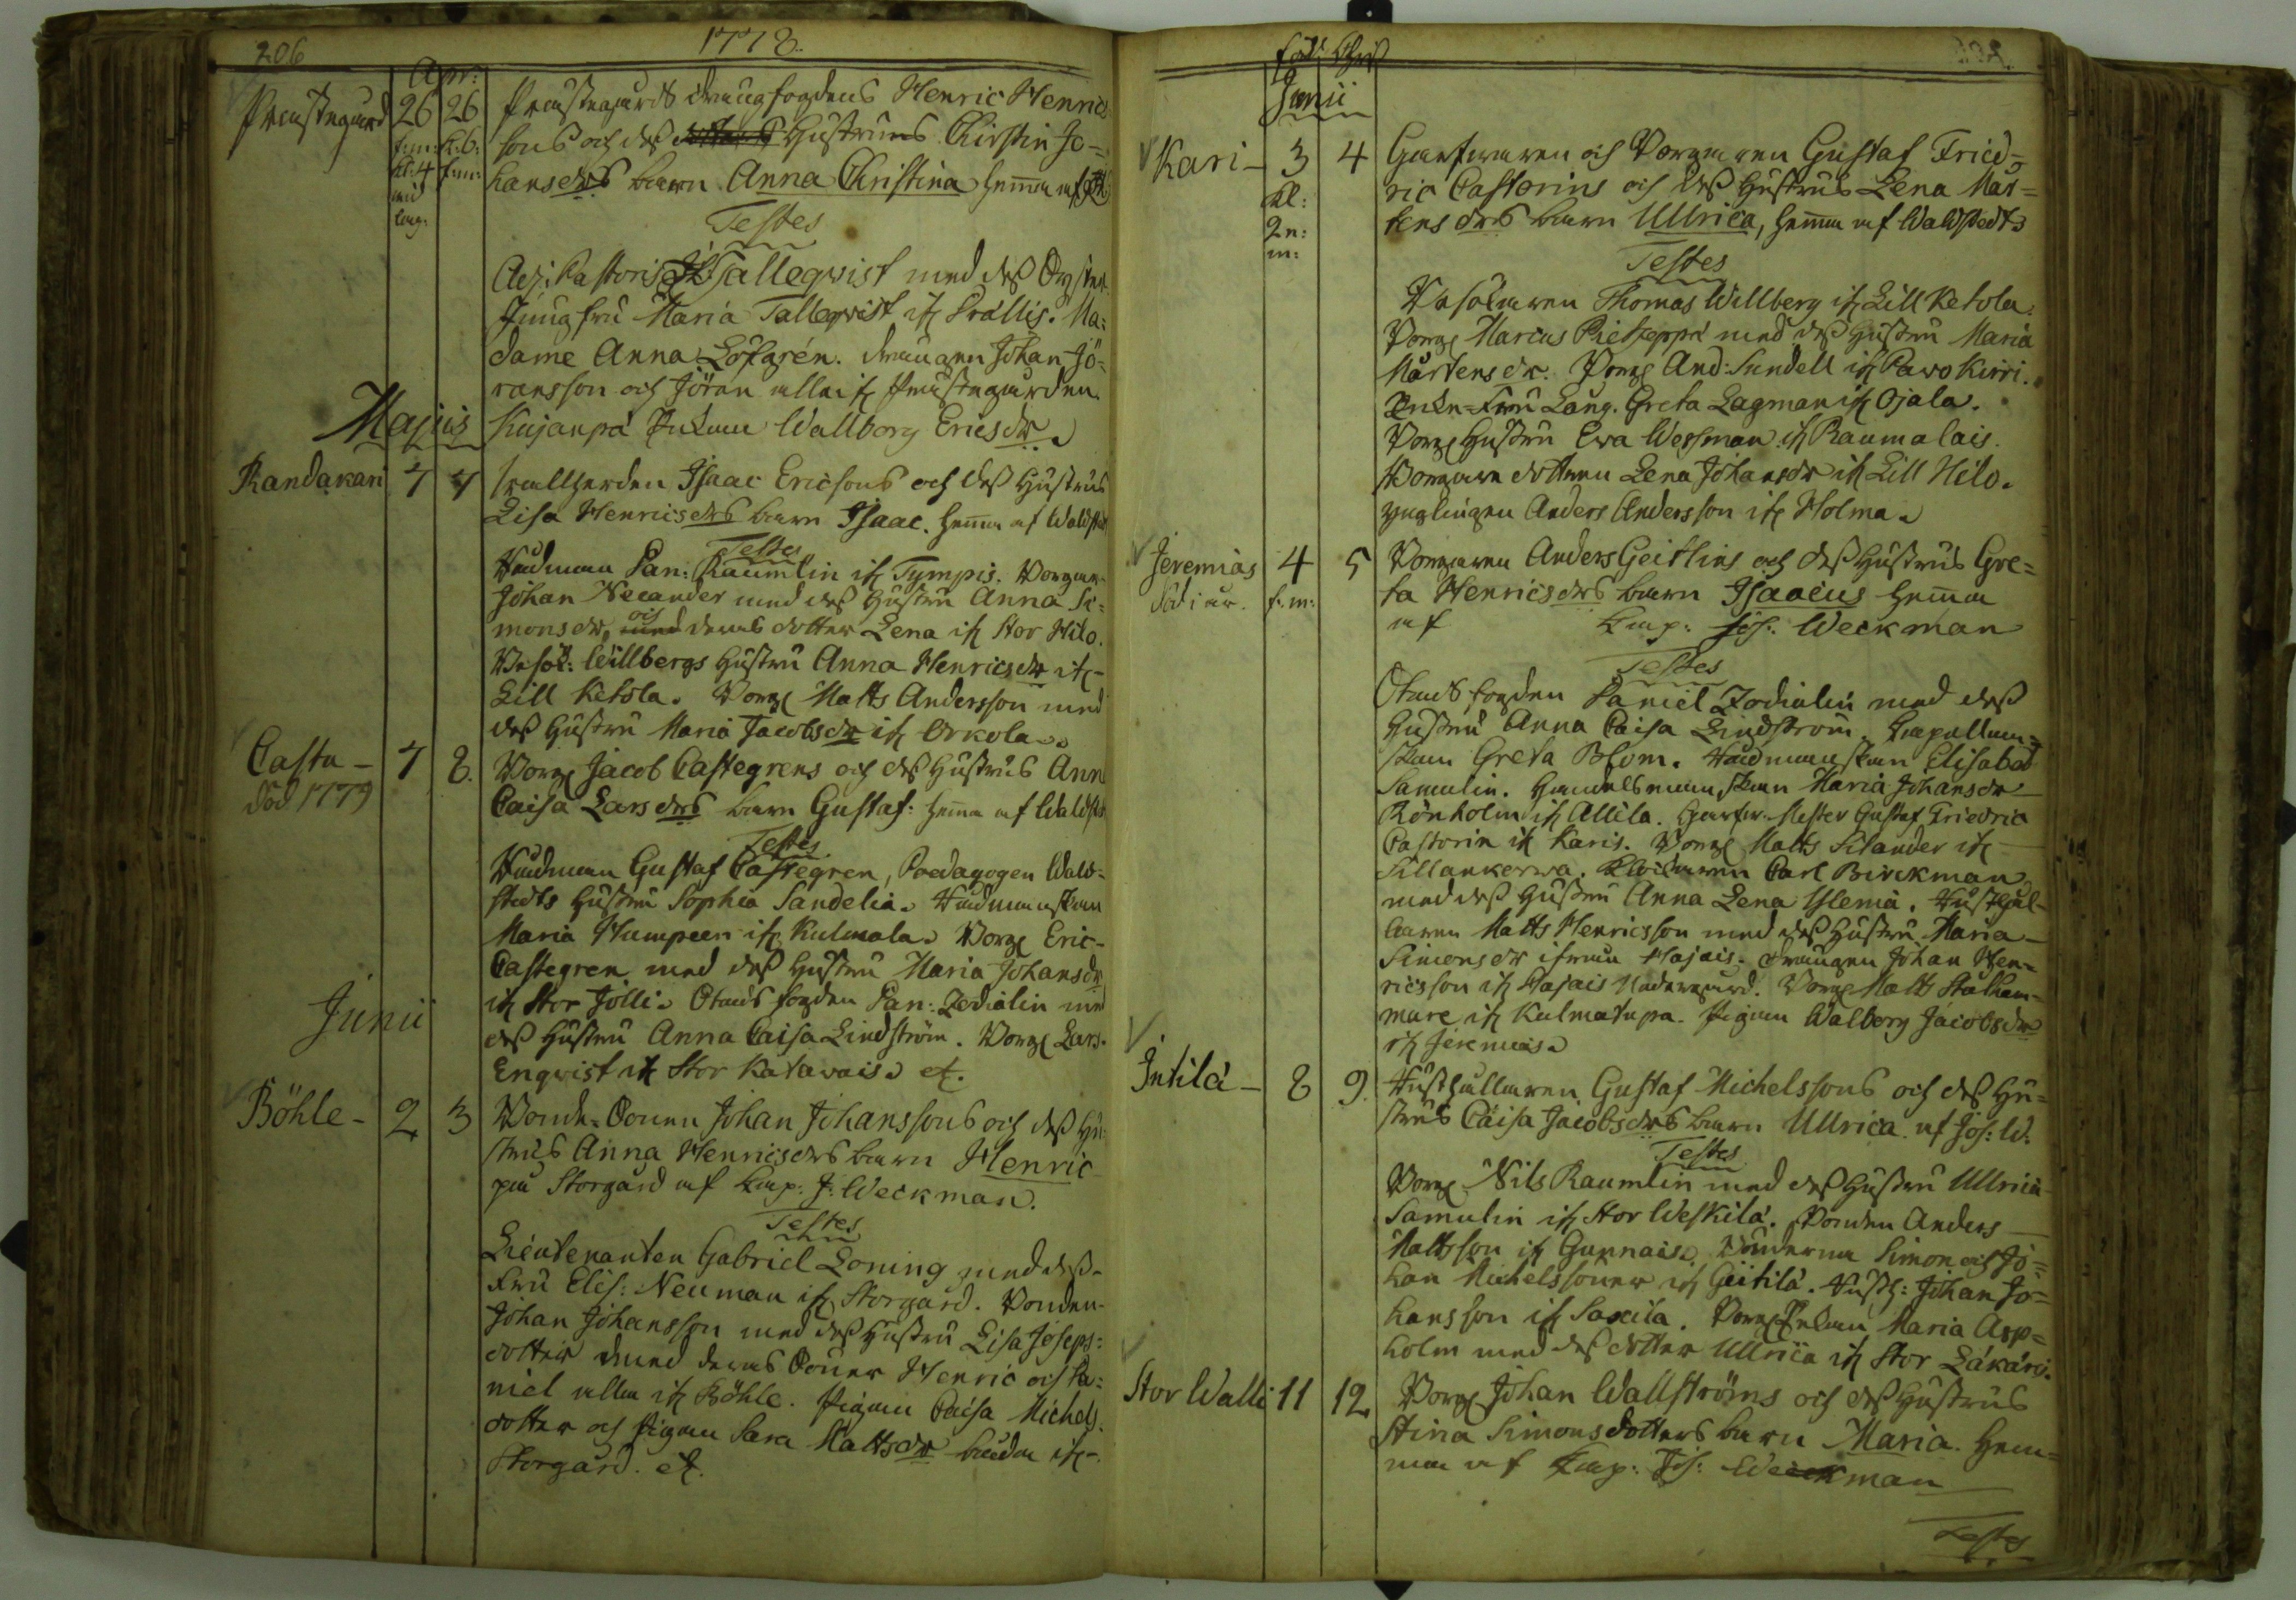 206
1778.
Apr:
Prästegård 26 26 Prästegårds drängfogdens Henric Henric
f:m: k:b: sons och dess Hustrus Chirstin Jo=
kl: 4 f:m: hansdrs barn Anna Christina hemma af
Testes
Adj: Pastoris Talleqvist med dess Syster
Jungfru Maria Tallqvist ifr Prällis. Ma=
dame Anna Löfgrén. drängen Johan Jö=
ransson och Jöran alla ifr Prästegården.
Majus
Kujanpä Enkan Wallborg Ericsdr.
Randakari 7 7 Isaac Ericsons och dess Hustrus
Lisa Henricsdrs barn Isaac. hemma af Waldstedt
Testes
Dan: Raumlin ifr Tympis. Borgar.
Johan Necander med dess Hustru Anna Si=
monsdr, och deras dotter Lena ifr Stor Hilo.
Willbergs Hustru Anna Henricsdr ifr
Lill Ketola. Borg Matts Andersson med
dess Hustru Maria Jacobsdr ifr Orkola.
Casta - 7 8. Borg Jacob Castegrens och dess Hustrus Anna
död 1779
Caisa Larsdrs barn Gustaf: hemma af Waldstedt
Testes
Gustaf Castegren, Paedagogen Wald=
stedts Hustru Sophia Sandelia.
Maria Humpeen ifr Kulmala. Borg Eric
Castegren med dess Hustru Maria Johansdr
ifr Stor Jölli. Stads fogden Dan: Zedialin med
Junii
dess Hustru Anna Caisa Lindström. Borg Lars
Enqvist ifr Stor Katavais. et.
Böhle - 2 3 Bonde-Sonen Johan Johanssons och dess Hu=
strus Anna Henricsdrs barn Henric
på Storgård af Cap: J: Weckman.
Testes
Lieutenanten Gabriel Loning med dess
Fru Elis: Neuman ifr Storgård. Bonden
Johan Johansson med dess Hustru Lisa Joseps=
dotter med deras Söner Henric och Da=
niel alla ifr Böhle. Pigan Caisa Michels
dotter och Pigan Sara Mattsdr båda ifr
Storgård. et.
föd: Chris
Junii
Kari - 3 4 Garfwaren och Borgaren Gustaf Fried=
kl: ric Castorins och dess Hustrus Lena Mår=
2 e: tensdrs barn Ullrica, hemma af Waldstedt
m:
Testes
Thomas Willberg ifr Lill Ketola.
Borg Marcus Rietseppä med dess Hustru Maria
Mårtensdr. Borg And: Sundell ifr Pavo Kirri.
Enke-Fru Lang. Greta Lagman ifr Ojala.
Borg Hustru Ewa Wessman ifr Raumalais.
Borgare dottren Lena Johansdr ifr Lill Hilo.
ynglingen Anders Andersson ifr Holma.
Jeremias 4 5 Borgaren Anders Geitlins och dess Hustrus Gre=
Död i år. f:m: ta Henricsdrs barn Isaacus hemma
af Cap: Jos: Weckman
Testes
Stads fogden Daniel Zodialin med dess
Hustru Anna Caisa Lindström.
Greta Blom. Elisabet
Samulin. Handelsmans Maria Johansdr
Rönholm ifr Allila. Garfw. Mester Gustaf Friedric
Castorin ifr Karis. Borg Matts Silander ifr
Sillankorwa. Carl Birckman
med dess Hustru Anna Lena Islenia. Hushål=
laren Matts Henricsson med dess Hustru Maria
Simonsdr ifrån Hajais. drängen Johan Hen=
ricsson ifr Hajais Nedergård. Borg Matts Stålham=
mare ifr Kulmatupa. Pigan Walborg Jacobsdr
ifr Jeremias.
Intilä - 8 9. Hushållaren Gustaf Michelssons och dess Hu=
strus Caisa Jacobsdrs barn Ullrica af Jos: W.
Testes
Borg Nils Raumlin med dess Hustru Ullrica
Samulin ifr Stor Weskilä. Bonden Anders
Mattsson ifr Gunnais. Bönderna Simon och Jo=
han Michelssöner ifr Giitilä. Hush: Johan Jo=
hansson ifr Saxila. Borg Enkan Maria Asp=
holm med dess dotter Ullrica ifr Stor Läkäri.
Stor Walli 11 12 Borg Johan Wallströms och dess Hustrus
Stina Simonsdotters barn Maria. hem=
ma af Cap: Jos: Weckman
Testes